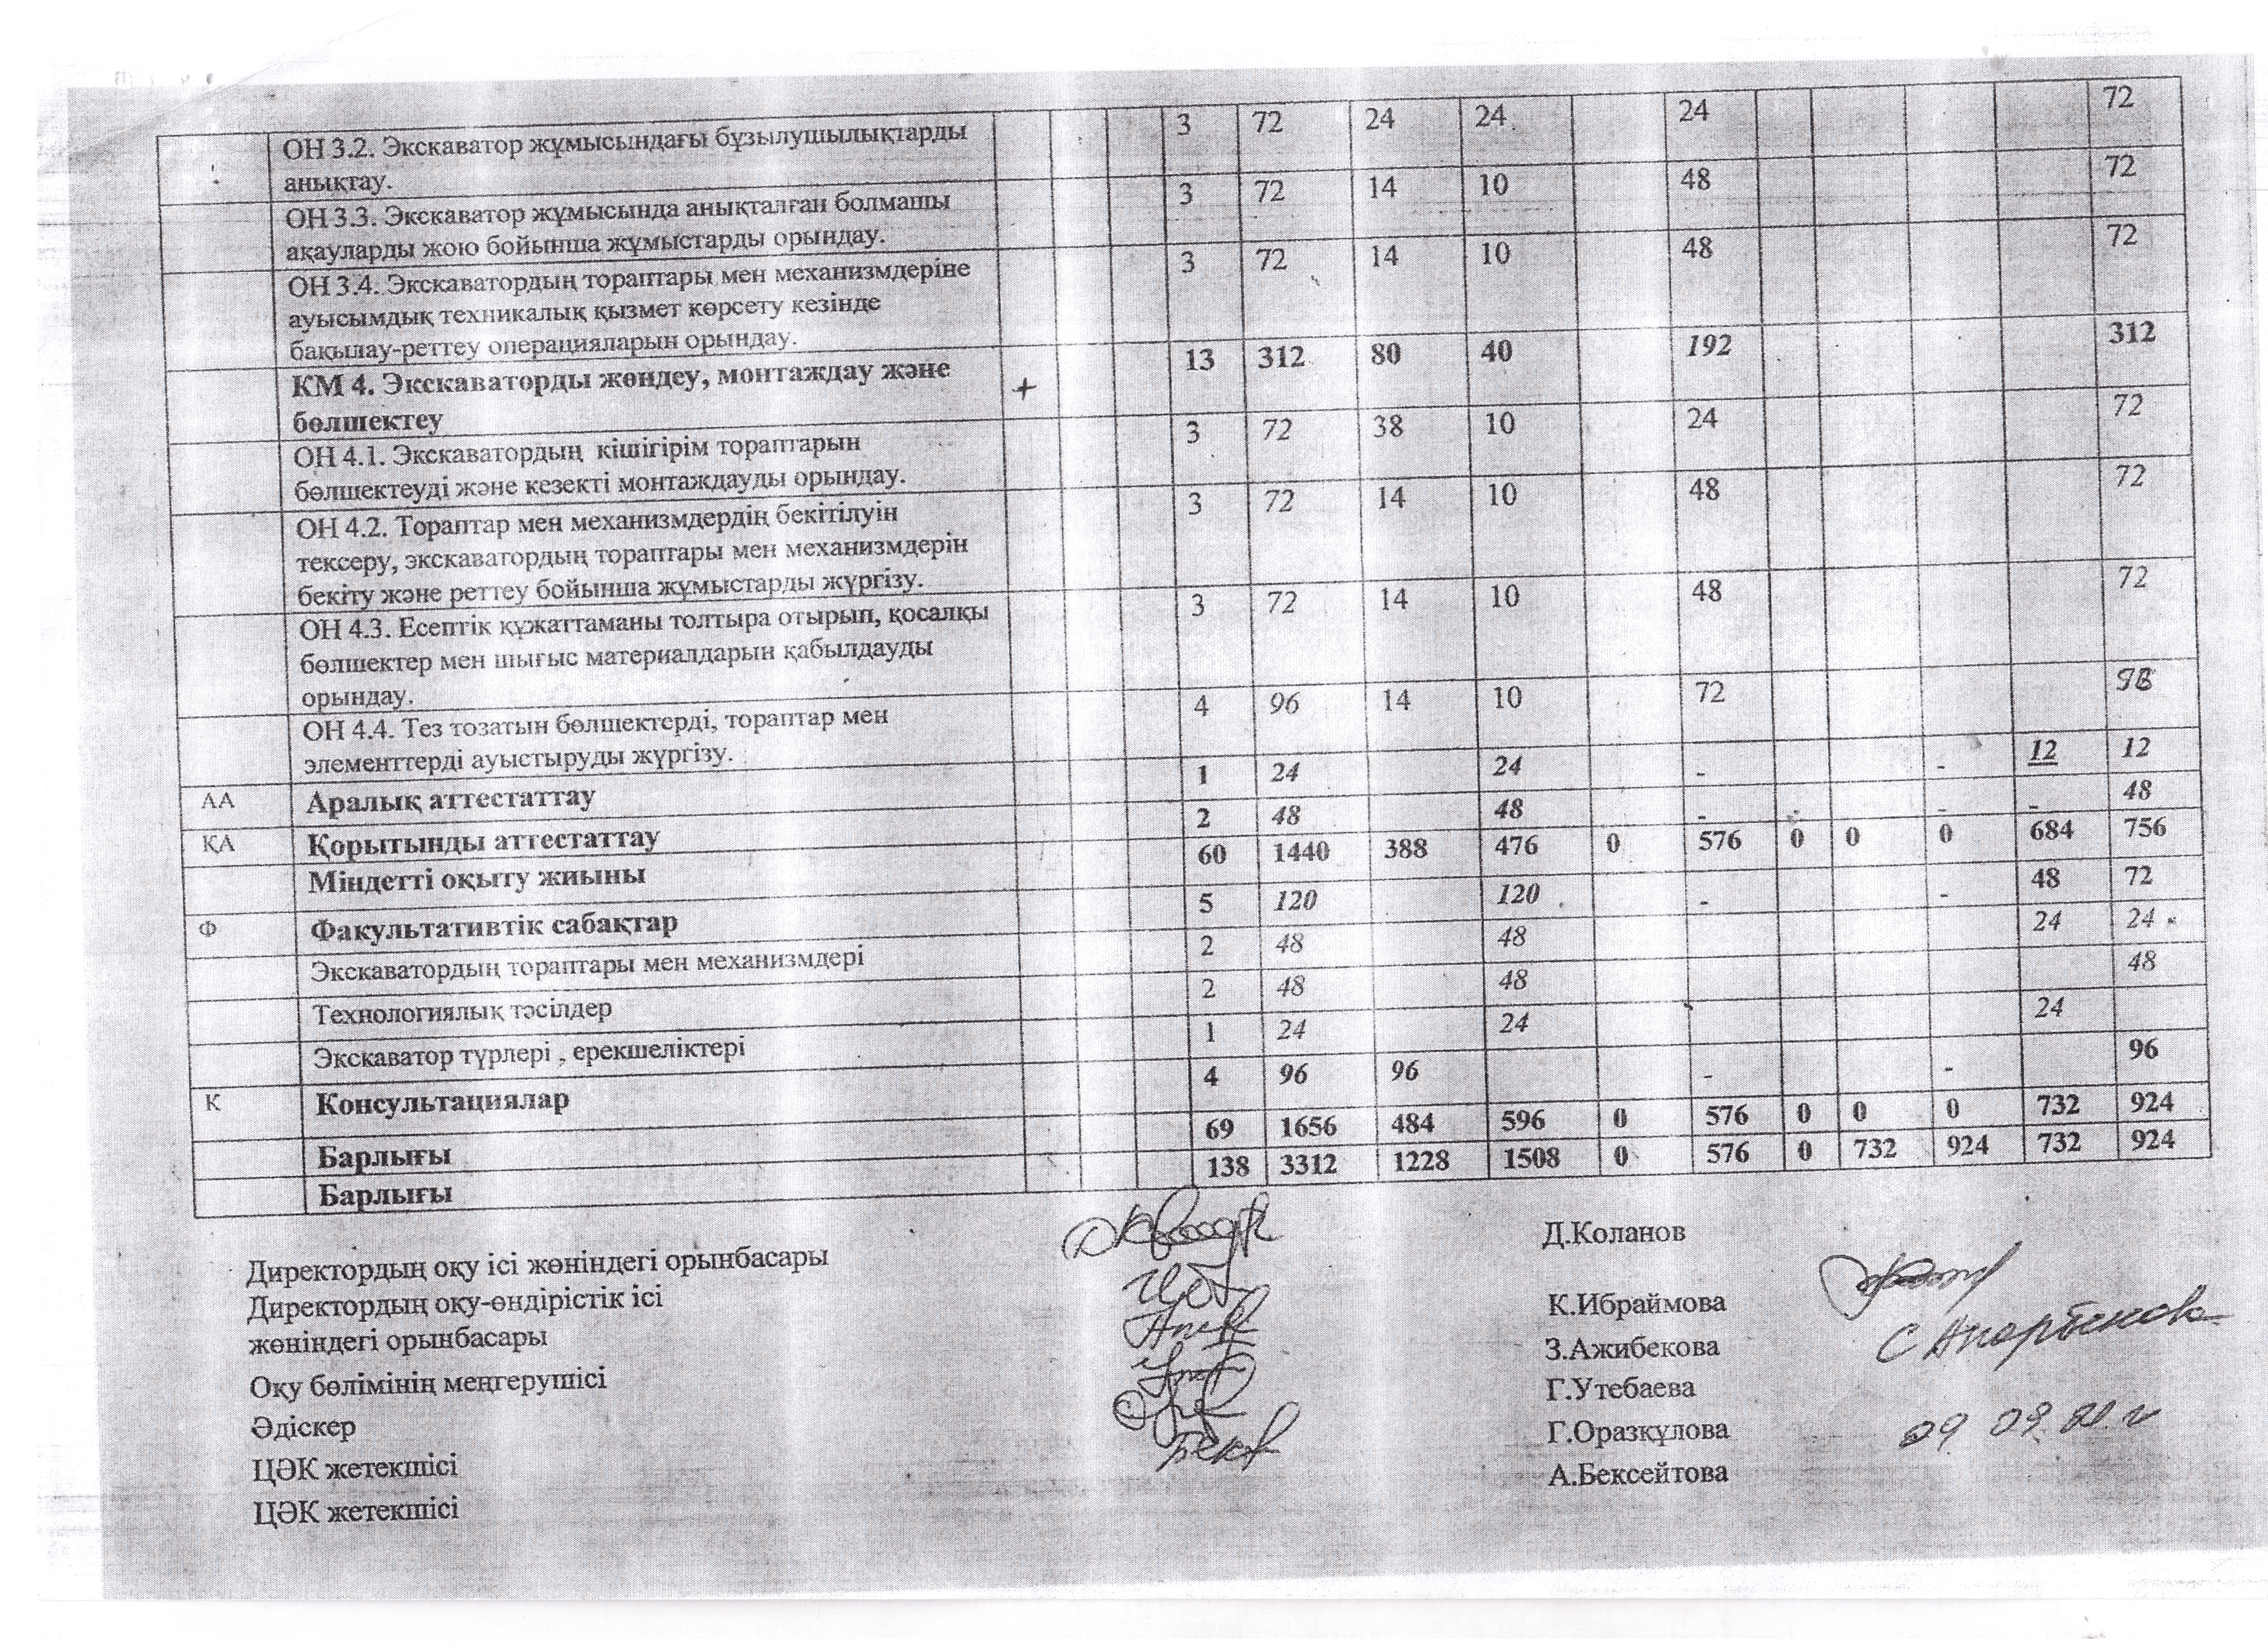 ОН 3.2. Экскаватор жұмысындағы бұзылушылықтарды 3 72 24 24 24 72
анықтау.
ОН 3.3. Экскаватор жұмысында анықталған болмашы 3 72 14 10 48 72
ақауларды жою бойынша жұмыстарды орындау.
ОН 3.4. Экскаватордың тораптары мен механизмдеріне 3 72 14 10 48 72
ауысымдық техникалық қызмет көрсету кезінде
бақылау-реттеу операцияларын орындау.
КМ 4. Экскаваторды жөндеу, монтаждау және + 13 312 80 40 192 312
бөлшектеу
ОН 4.1. Экскаватордың кішігірім тораптарын 3 72 38 10 24 72
бөлшектеуді және кезекті монтаждауды орындау.
ОН 4.2. Тораптар мен механизмдердің бекітілуін 3 72 14 10 48 72
тексеру, экскаватордың тораптары мен механизмдерін
бекіту және реттеу бойынша жұмыстарды жүргізу.
ОН 4.3. Есептік құжаттаманы толтыра отырып, қосалқы 3 72 14 10 48 72
бөлшектер мен шығыс материалдарын қабылдауды
орындау.
ОН 4.4. Тез тозатын бөлшектерді, тораптар мен 4 96 14 10 72
элементтерді ауыстыруды жүргізу.
АА Аралық аттестаттау 1 24 24 - - 12 12
ҚА Қорытынды аттестаттау 2 48 48 - - - 48
Міндетті оқыту жиыны 60 1440 388 476 0 576 0 0 0 684 756
Ф Факультативтік сабақтар 5 120 120 - - 48 72
Экскаватордың тораптары мен механизмдері 2 48 48 24 24
Технологиялық тәсілдер 2 48 48 48
Экскаватор түрлері , ерекшеліктері 1 24 24 24
К Консультациялар 4 96 96 - - 96
Барлығы 69 1656 484 596 0 576 0 0 0 732 924
Барлығы 138 3312 1228 1508 0 576 0 732 924 732 924
Директордың оқу ісі жөніндегі орынбасары Д.Коланов
Директордың оқу-өндірістік ісі
жөніндегі орынбасары К.Ибраймова
Оқу бөлімінің меңгерушісі З.Ажибекова
Әдіскер Г.Утебаева
ЦӘК жетекшісі Г.Оразқұлова
ЦӘК жетекшісі А.Бексейтова